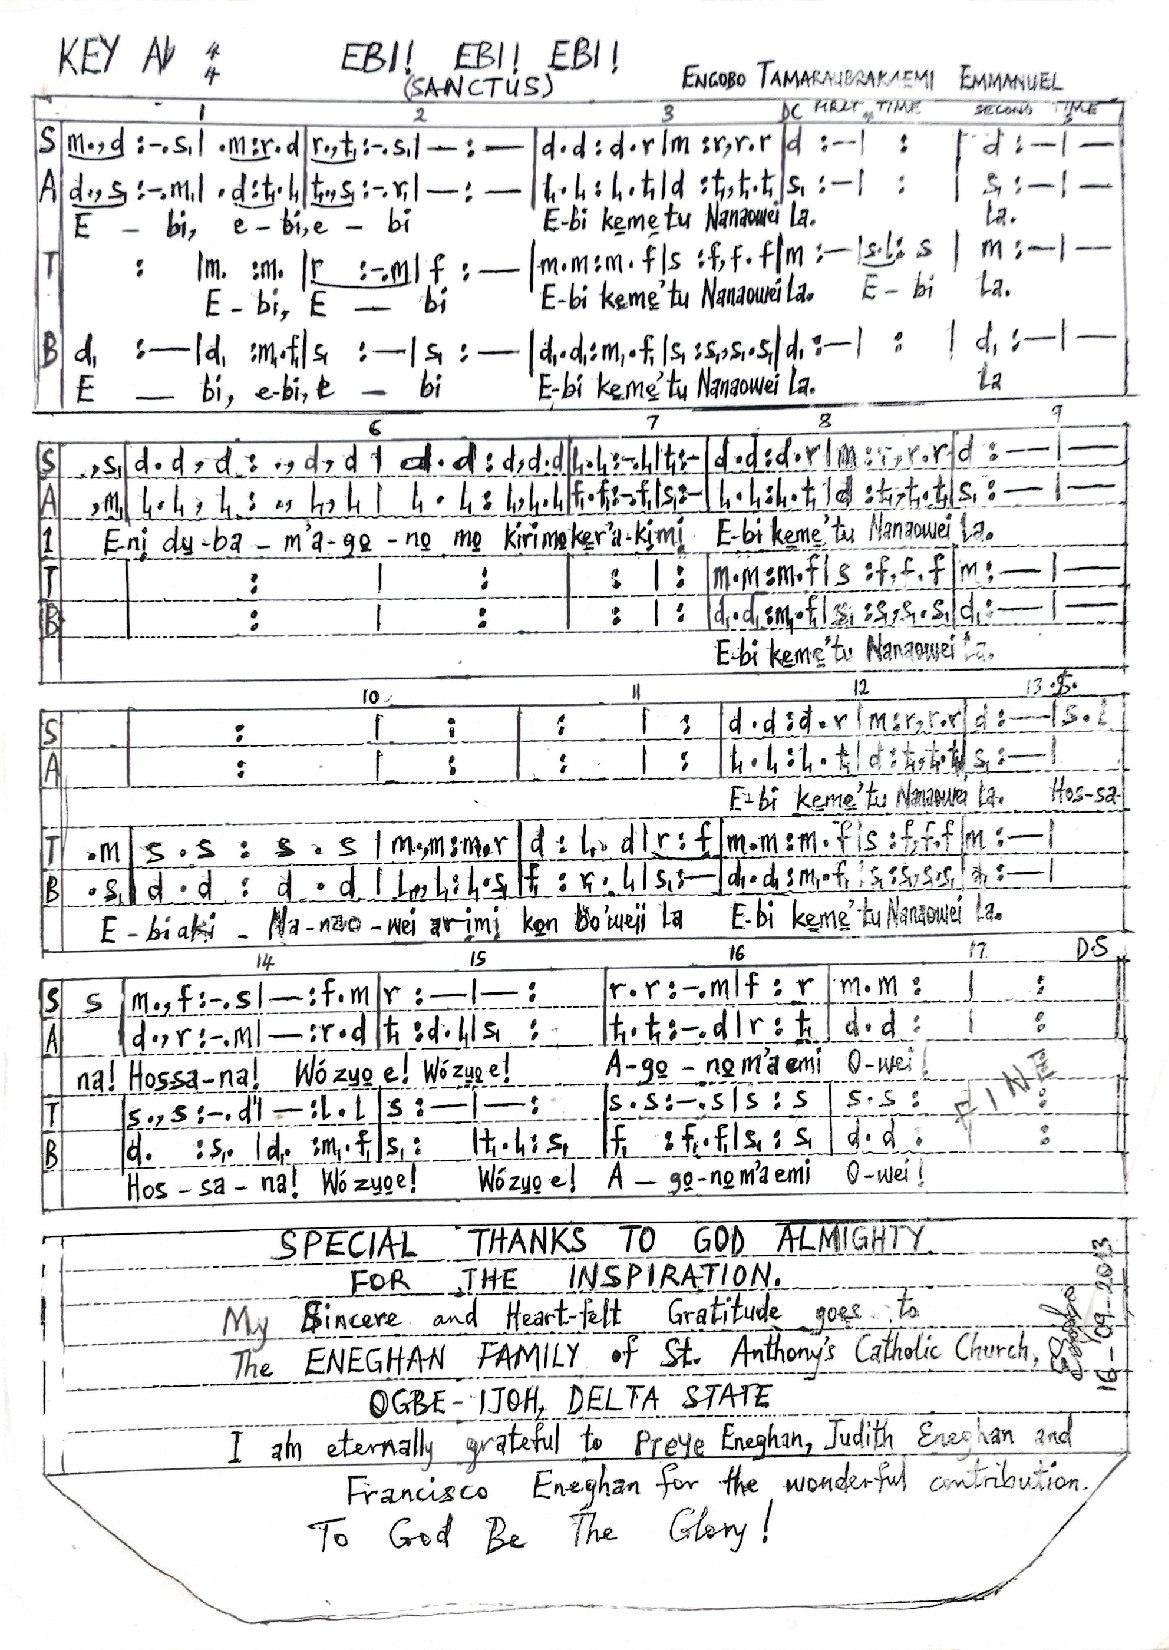 KEY A♭ 4/4 EBI! EBI! EBI!
(SANCTUS) ENGOBO TAMARAUBRAKAEMI EMMANUEL
1 2 3 DC FIRST TIME SECOND TIME
S m.,d :-.s₁| .m:r.d|r.,t₁:-.s₁|— : —|d.d:d.r|m :r,r.r|d :--| : | d :—|—
A d.,s₁:-.m₁| .d:t₁.l₁|t₁.,s₁:-.r₁|— : —|l₁.l₁:l₁.t₁|d :t₁,t₁.t₁|s₁ :—| : | s₁ :—|—
E – bi, e-bi,e – bi E-bi keme̱'tu Nanaowei La. La.
T : |m. :m. |r :-.m|f : —|m.m:m.f|s :f,f.f|m :—|s.l:s | m :—|—
E-bi, E — bi E-bi keme̱'tu Nanaowei La. E-bi La.
B d₁ :—|d₁ :m₁.f₁|s₁ :—|s₁ : —|d₁.d₁:m₁.f₁|s₁:s₁,s₁.s₁|d₁:—| : | d₁ :—|—
E — bi, e-bi,E – bi E-bi keme̱'tu Nanaowei La. La
6 7 8 9
S .,s₁|d.d,d: .,d,d| d.d:d,d.d|l₁.l₁:-.l₁|t₁:-|d.d:d.r|m:r,r.r|d :—|—
A ,m₁|l₁.l₁,l₁: .,l₁,l₁| l₁.l₁:l₁,l₁.l₁|f₁.f₁:-.f₁|s₁:-|l₁.l₁:l₁.t₁|d:t₁,t₁.t₁|s₁:—|—
1 E-ni̱ du̱-ba-m'a-go̱-no̱ mo̱ kirimo̱ke̱r'a-ki̱mi̱ E-bi ke̱me̱'tu Nanaowei La.
T : | : | : | : |m.m:m.f|s :f,f.f|m:—|—
B : | : | : | : |d₁.d₁:m₁.f₁|s₁:s₁,s₁.s₁|d₁:—|—
E-bi ke̱me̱'tu Nanaowei La.
10 11 12 13 .S.
S : | : | : | : |d.d:d.r|m:r,r.r|d:—|s.l
A : | : | : | : |l₁.l₁:l₁.t₁|d:t₁,t₁.t₁|s₁:—|
E-bi ke̱me̱'tu Nanaowei La. Hos-sa-
T .m|s.s : s.s|m.,m:m.r|d : l₁.d|r:f|m.m:m.f|s:f,f.f|m:—|
B .s₁|d.d : d.d|l₁.,l₁:l₁.s₁|f₁ : r₁.l₁|s₁:—|d₁.d₁:m₁.f₁|s₁:s₁,s₁.s₁|d₁:—|
E-biaki-Na-nao-wei ari̱mi̱ ko̱n bo'weii La E-bi ke̱me̱'tu Nanaowei La.
14 15 16 17 D.S
S s |m.,f:-.s|—:f.m|r :—|—: |r.r:-.m|f : r |m.m : | :
A |d.,r:-.m|—:r.d|t₁:d.l₁|s₁ : |t₁.t₁:-.d|r:t₁ |d.d : | :
na! Hossa-na! Wó zuo̱e! Wózuo̱e! A-go̱-no̱m'a emi O-wei!
T |s.,s:-.d'|—:l.l|s :—|—: |s.s:-.s|s : s |s.s : FINE :
B |d. :s₁. |d₁. :m₁.f₁|s₁: |t₁.l₁:s₁|f₁ :f₁.f₁|s₁ : s₁ |d.d : | :
Hos-sa-na! Wó zuo̱e! Wózuo̱e! A—go̱-no̱m'a emi O-wei!
SPECIAL THANKS TO GOD ALMIGHTY
FOR THE INSPIRATION.
My Sincere and Heart-felt Gratitude goes to
The ENEGHAN FAMILY of St. Anthony's Catholic Church,
OGBE-IJOH, DELTA STATE
I am eternally grateful to Preye Eneghan, Judith Eneghan and
Francisco Eneghan for the wonderful contribution.
To God Be The Glory!
16-09-2013